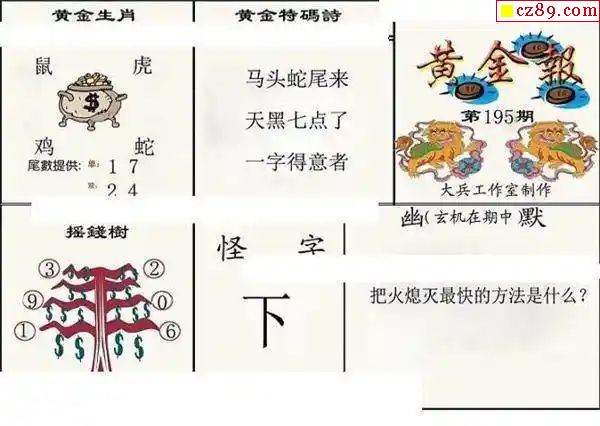 cz89.com
黄金生肖
鼠 虎
$
鸡 蛇
尾數提供: 单: 1 7
双: 2 4
黄金特碼詩
马头蛇尾来
天黑七点了
一字得意者
黄金報
第195期
大兵工作室制作
摇錢樹
③ ②
⑨ ⓪
① ⑥
$ $ $ $
$ $ $ $
怪 字
下
幽(玄机在期中)默
把火熄灭最快的方法是什么?